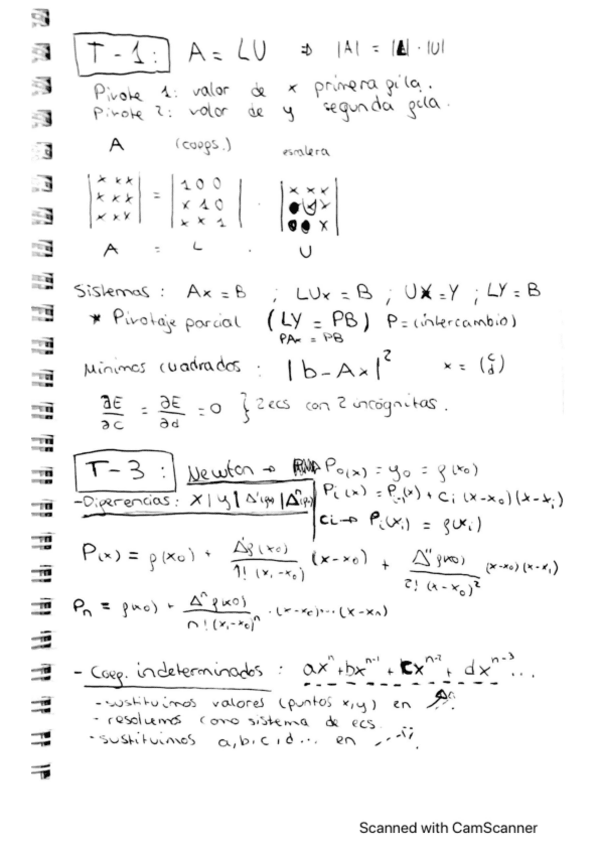 T-1: A = LU ⇒ |A| = |L| · |U|
Pivote 1: valor de x primera fila.
Pivote 2: valor de y segunda fila.
A (coefs.) escalera
|x x x| = |1 0 0| · |x x x|
|x x x| |x 1 0| |● x x|
|x x x| |x x 1| |● ● x|
A = L · U
Sistemas: Ax = B ; LUx = B ; UX = Y ; LY = B
* Pivotaje parcial (LY = PB) P = (intercambio)
PAx = PB
Mínimos cuadrados: |b - Ax|² x = (c d)
∂E/∂c = ∂E/∂d = 0 } 2 ecs con 2 incógnitas.
T-3: Newton → P₀(x) = y₀ = f(x₀)
- Diferencias: x | y | Δ'f(x) | Δⁿf(x) Pi(x) = Pi-1(x) + ci (x-x₀)(x-xi)
ci → Pi(xi) = f(xi)
P(x) = f(x₀) + Δf(x₀)/1!(x₁-x₀) (x-x₀) + Δ''f(x₀)/2!(x-x₀)² (x-x₀)(x-x₁)
Pn = f(x₀) + Δⁿf(x₀)/n!(x₁-x₀)ⁿ · (x-x₀)...(x-xn)
- Coef. indeterminados: axⁿ + bxⁿ⁻¹ + cxⁿ⁻² + dxⁿ⁻³...
- sustituimos valores (puntos x,y) en
- resolvemos como sistema de ecs.
- sustituimos a, b, c, d... en
Scanned with CamScanner